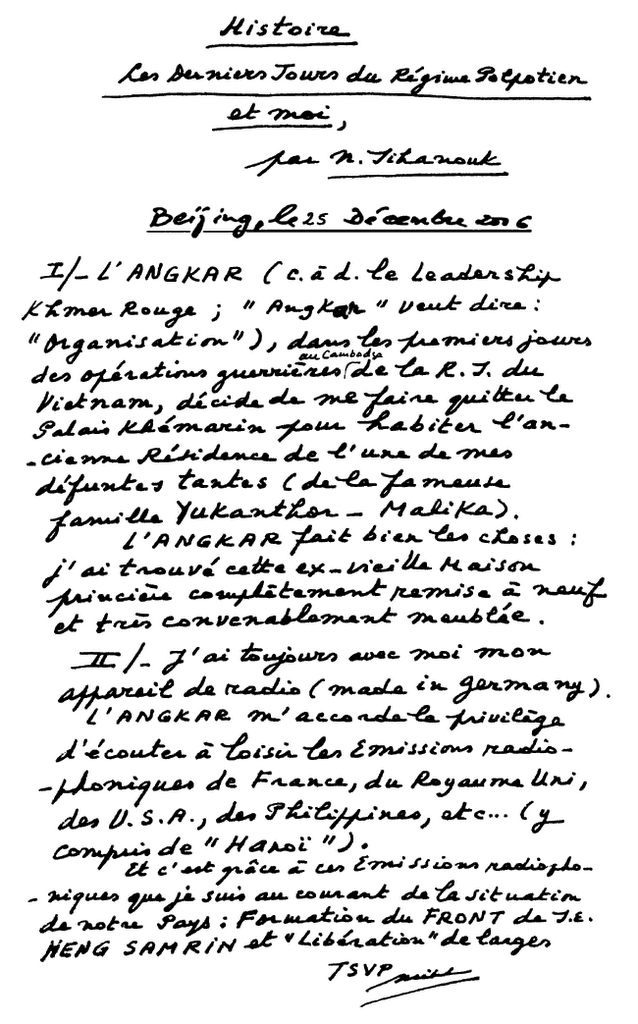 Histoire
Les Derniers Jours du Régime Polpotien
et moi,
par N. Sihanouk
Beijing, le 25 Décembre 2006
I/- L'ANGKAR (c. à d. le Leadership
Khmer Rouge ; "Angkar" veut dire :
"Organisation"), dans les premiers jours
au Cambodge
des opérations guerrières de la R. S. du
Vietnam, décide de me faire quitter le
Palais Khémarin pour habiter l'an-
-cienne Résidence de l'une de mes
défuntes tantes (de la fameuse
famille Yukanthor - Malika).
L'ANGKAR fait bien les choses :
j'ai trouvé cette ex-vieille Maison
princière complètement remise à neuf
et très convenablement meublée.
II/- J'ai toujours avec moi mon
appareil de radio (made in Germany).
L'ANGKAR m'accorde le privilège
d'écouter à loisir les Emissions radio-
-phoniques de France, du Royaume Uni,
des U.S.A., des Philippines, etc... (y
compris de "Hanoï").
Et c'est grâce à ces Emissions radiopho-
-niques que je suis au courant de la situation
de notre Pays : Formation du FRONT de S.E.
HENG SAMRIN et "Libération" de larges
TSVP